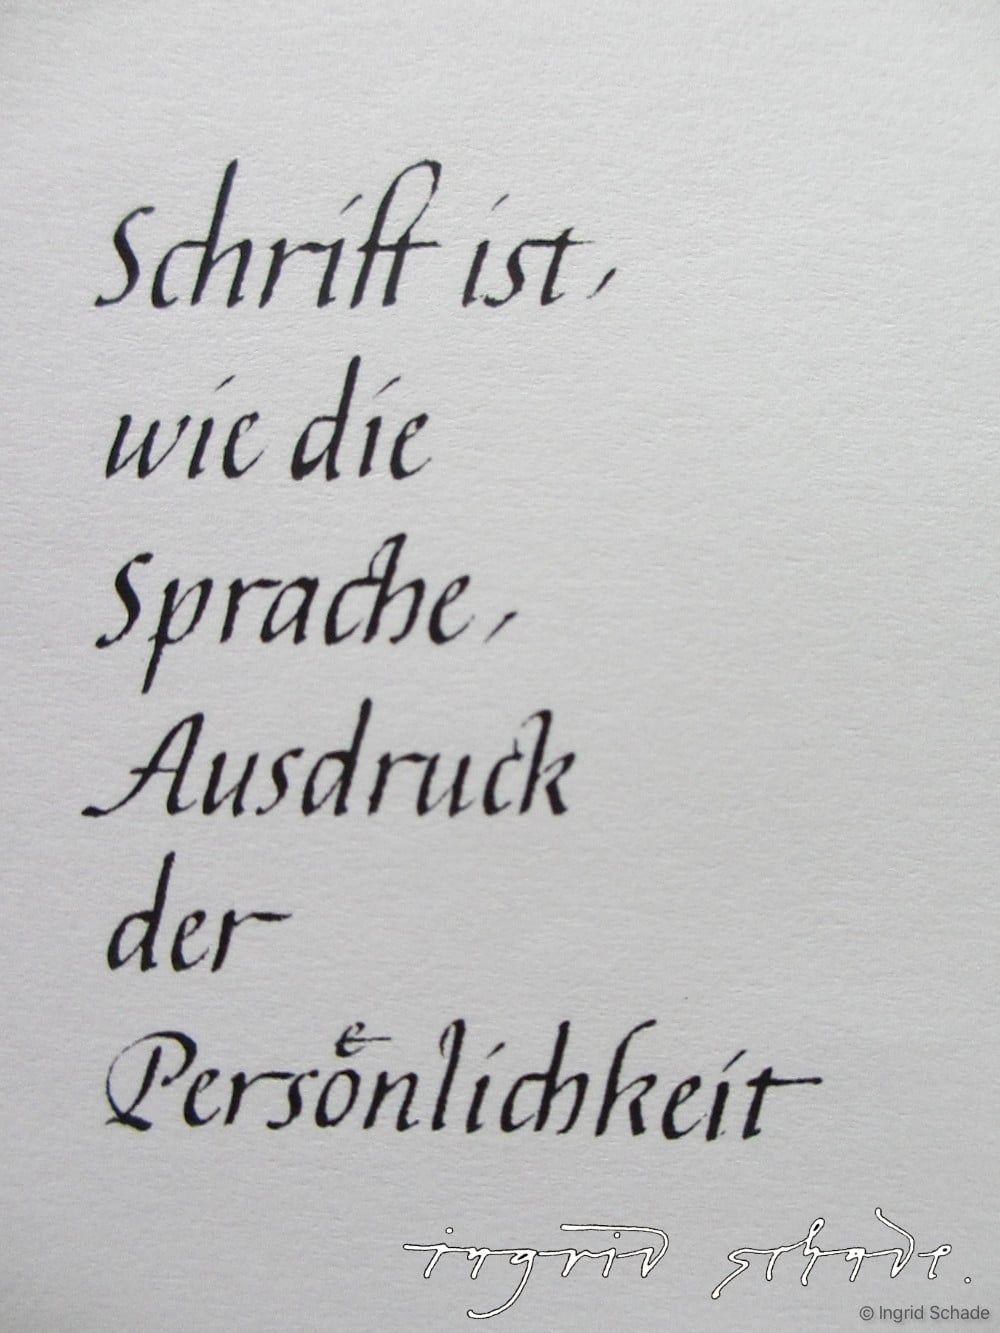 Schrift ist,
wie die
Sprache,
Ausdruck
der
Persoͤnlichkeit
ingrid schade.
© Ingrid Schade